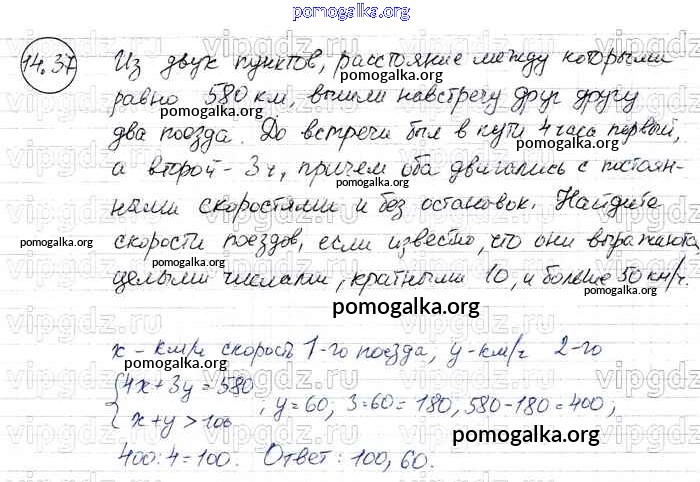 pomogalka.org
14.37 Из двух пунктов, расстояние между которыми
равно 580 км, вышли навстречу друг другу
два поезда. До встречи был в пути 4 часа первый,
а второй - 3 ч, причем оба двигались с постоян-
ными скоростями и без остановок. Найдите
скорости поездов, если известно, что они выражаются
целыми числами, кратными 10, и больше 50 км/ч.
pomogalka.org
x - км/ч скорость 1-го поезда, y - км/ч 2-го
4x + 3y = 580
x + y > 100 , y = 60; 3·60 = 180, 580 - 180 = 400,
400 : 4 = 100. Ответ: 100, 60.
pomogalka.org